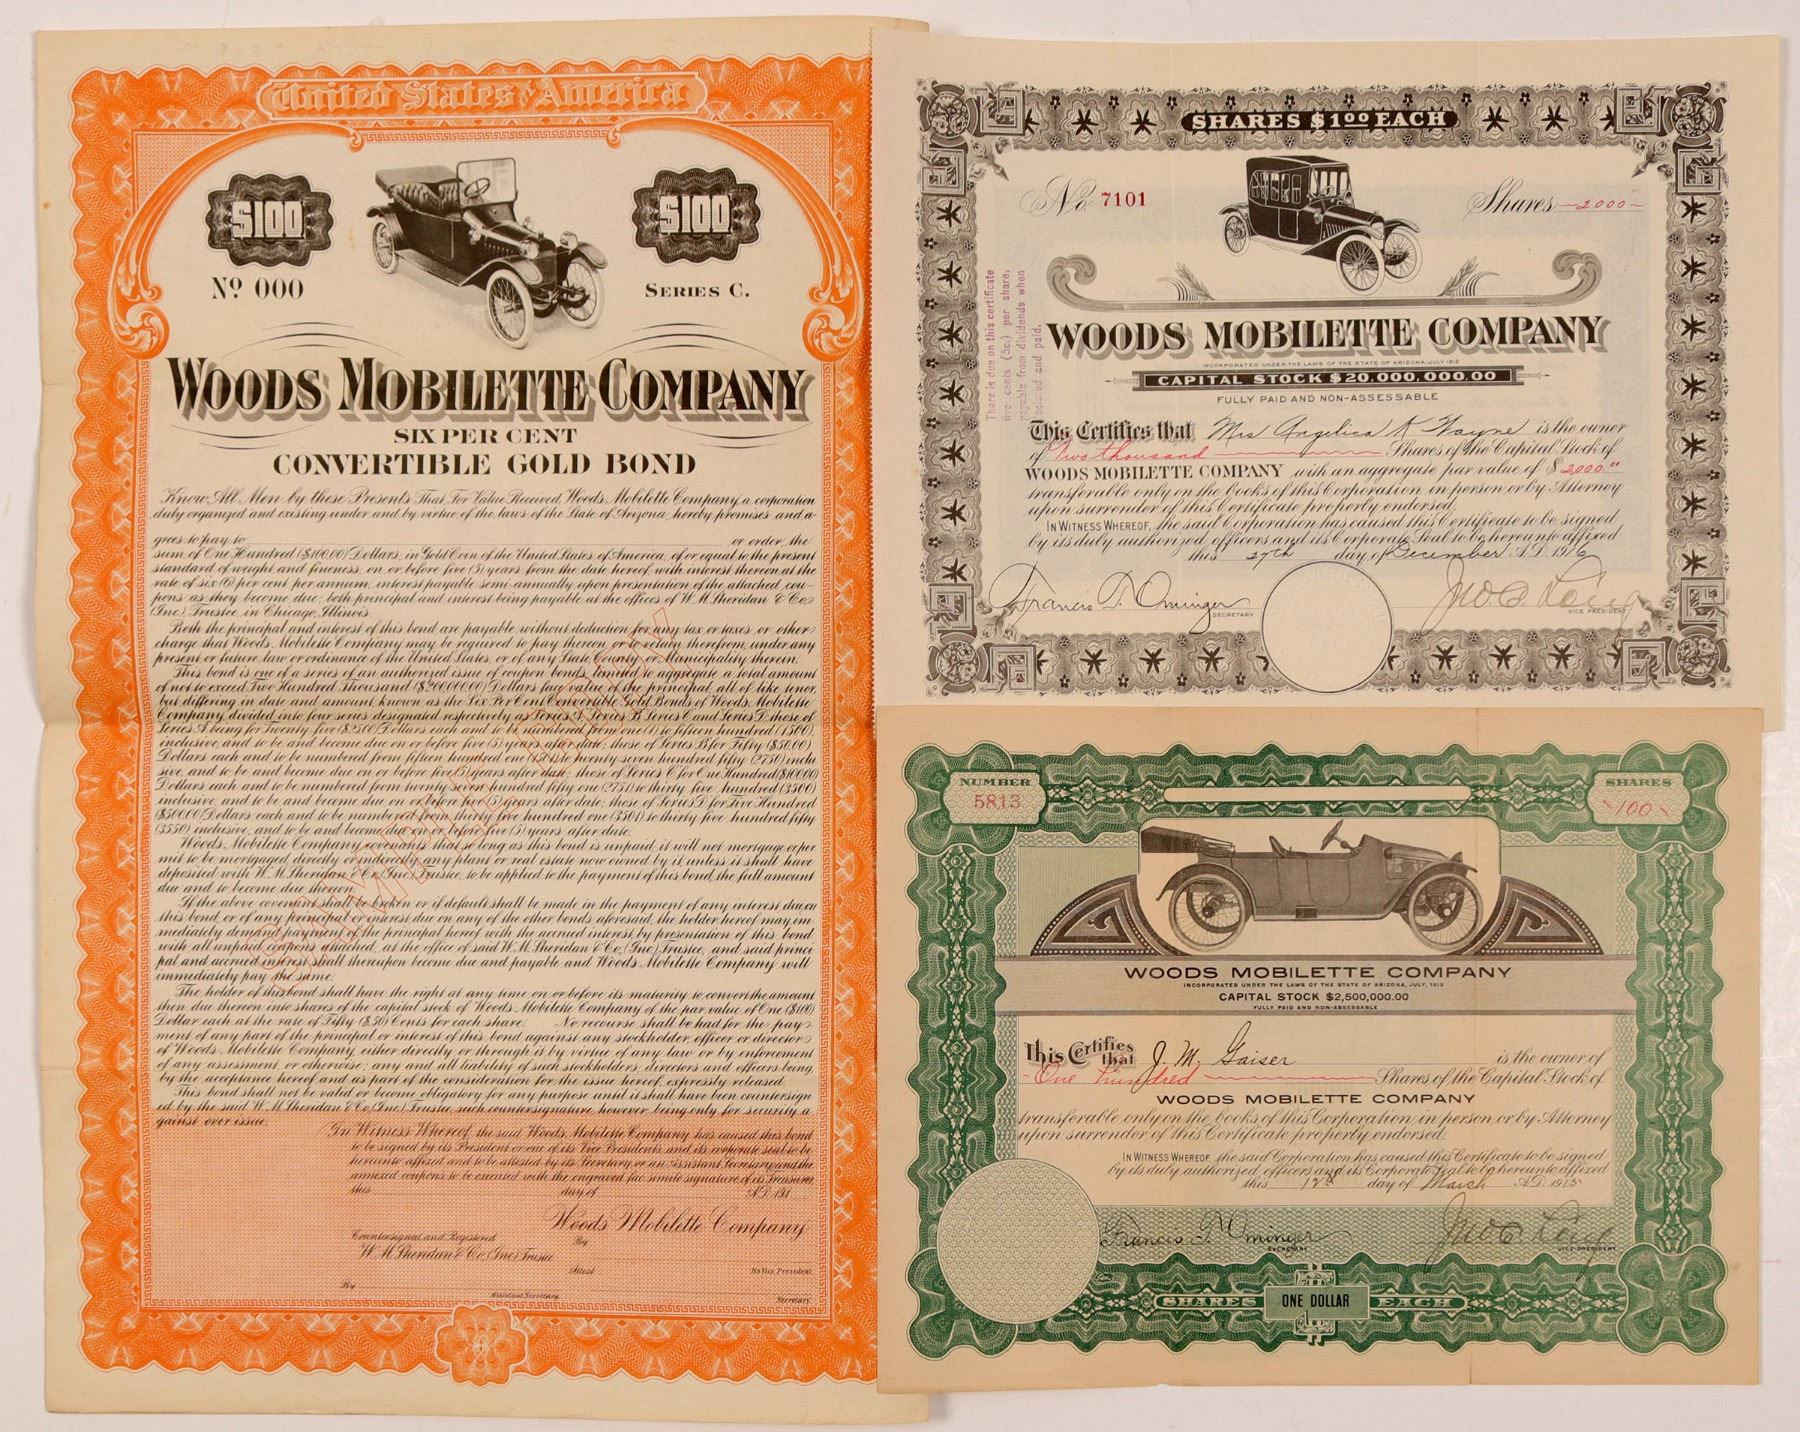 United States of America
$100
$100
Nº 000
SERIES C.
WOODS MOBILETTE COMPANY
SIX PER CENT
CONVERTIBLE GOLD BOND
Know All Men by these Presents That For Value Received Woods Mobilette Company, a corporation
duly organized and existing under and by virtue of the laws of the State of Arizona, hereby promises and a-
grees to pay to or order the
sum of One Hundred ($100.00) Dollars, in Gold Coin of the United States of America, of or equal to the present
standard of weight and fineness, on or before five (5) years from the date hereof, with interest thereon at the
rate of six (6) per cent per annum, interest payable semi-annually upon presentation of the attached cou-
pons as they become due; both principal and interest being payable at the offices of W. M. Sheridan & Co.
(Inc.) Trustee, in Chicago, Illinois.
Both the principal and interest of this bond are payable without deduction for any tax or taxes or other
charge that Woods Mobilette Company may be required to pay thereon or to retain therefrom, under any
present or future law or ordinance of the United States, or of any State, County or Municipality therein.
This bond is one of a series of an authorized issue of coupon bonds, limited to aggregate a total amount
of not to exceed Two Hundred Thousand Dollars face value of the principal, all of like tenor,
but differing in date and amount, known as the Six Per Cent Convertible Gold Bonds of Woods Mobilette
Company, divided into four series designated respectively as Series A, Series B, Series C and Series D; those of
Series A being for Twenty five ($25.00) Dollars each and to be numbered from one (1) to fifteen hundred (1500)
inclusive, and to be and become due on or before five (5) years after date; those of Series B for Fifty ($50.00)
Dollars each and to be numbered from fifteen hundred one (1501) to twenty seven hundred fifty (2750) inclu
sive, and to be and become due on or before five (5) years after date; those of Series C for One Hundred ($100.00)
Dollars each and to be numbered from twenty seven hundred fifty one (2751) to thirty five hundred (3500)
inclusive, and to be and become due on or before five (5) years after date; those of Series D for Five Hundred
($500.00) Dollars each and to be numbered from thirty five hundred one (3501) to thirty five hundred fifty
(3550) inclusive, and to be and become due on or before five (5) years after date.
Woods Mobilette Company covenants that so long as this bond is unpaid, it will not mortgage or per
mit to be mortgaged, directly or indirectly, any plant or real estate now owned by it, unless it shall have
deposited with W. M. Sheridan & Co. (Inc.) Trustee, to be applied to the payment of this bond, the full amount
due and to become due thereon.
If the above covenant shall be broken or if default shall be made in the payment of any interest due on
this bond, or of any principal or interest due on any of the other bonds aforesaid, the holder hereof may im-
mediately demand payment of the principal hereof with the accrued interest, by presentation of this bond
with all unpaid coupons attached, at the office of said W. M. Sheridan & Co. (Inc.) Trustee, and said princi
pal and accrued interest shall thereupon become due and payable and Woods Mobilette Company will
immediately pay the same.
The holder of this bond shall have the right at any time on or before its maturity to convert the amount
then due thereon into shares of the capital stock of Woods Mobilette Company of the par value of One ($1.00)
Dollar each at the rate of Fifty ($.50) Cents for each share. No recourse shall be had for the pay-
ment of any part of the principal or interest of this bond against any stockholder, officer or director
of Woods Mobilette Company, either directly or through it by virtue of any law or by enforcement
of any assessment, or otherwise; any and all liability of such stockholders, directors and officers being,
by the acceptance hereof and as part of the consideration for the issue hereof, expressly released.
This bond shall not be valid or become obligatory for any purpose until it shall have been countersign
ed by the said W. M. Sheridan & Co. (Inc.) Trustee, such countersignature, however, being only for security a
gainst over issue.
In Witness Whereof, the said Woods Mobilette Company has caused this bond
to be signed by its President or one of its Vice Presidents and its corporate seal to be
hereunto affixed and to be attested by its Secretary or an Assistant Secretary and the
annexed coupons to be executed with the engraved fac simile signature of its Treasurer
this day of A.D. 191
Woods Mobilette Company
Countersigned and Registered
By
W. M. Sheridan & Co. (Inc.) Trustee
Its Vice President
Attest
By
Assistant Secretary
Secretary
SHARES $1.00 EACH
No. 7101
Shares 2000
There is due on this certificate
five cents (5c.) per share,
payable from dividends when
declared and paid.
WOODS MOBILETTE COMPANY
INCORPORATED UNDER THE LAWS OF THE STATE OF ARIZONA, JULY, 1913
CAPITAL STOCK $20,000,000.00
FULLY PAID AND NON-ASSESSABLE
This Certifies that Mrs Angelica K Wayne is the owner
of Two thousand Shares of the Capital Stock of
WOODS MOBILETTE COMPANY with an aggregate par value of $2,000.00
transferable only on the books of this Corporation in person or by Attorney
upon surrender of this Certificate properly endorsed.
IN WITNESS WHEREOF, the said Corporation has caused this Certificate to be signed
by its duly authorized officers and its Corporate Seal to be hereunto affixed
this 27th day of December A.D. 1916
Francis D.
SECRETARY
Jno. C.
VICE PRESIDENT
NUMBER
5813
SHARES
100
WOODS MOBILETTE COMPANY
INCORPORATED UNDER THE LAWS OF THE STATE OF ARIZONA, JULY, 1913
CAPITAL STOCK $2,500,000.00
FULLY PAID AND NON-ASSESSABLE
This Certifies that J. M. Gaiser is the owner of
One hundred Shares of the Capital Stock of
WOODS MOBILETTE COMPANY
transferable only on the books of this Corporation in person or by Attorney
upon surrender of this Certificate properly endorsed.
IN WITNESS WHEREOF, the said Corporation has caused this Certificate to be signed
by its duly authorized officers and its Corporate Seal to be hereunto affixed
this 12th day of March A.D. 1915
Francis
SECRETARY
Jno. C.
VICE-PRESIDENT
SHARES ONE DOLLAR EACH